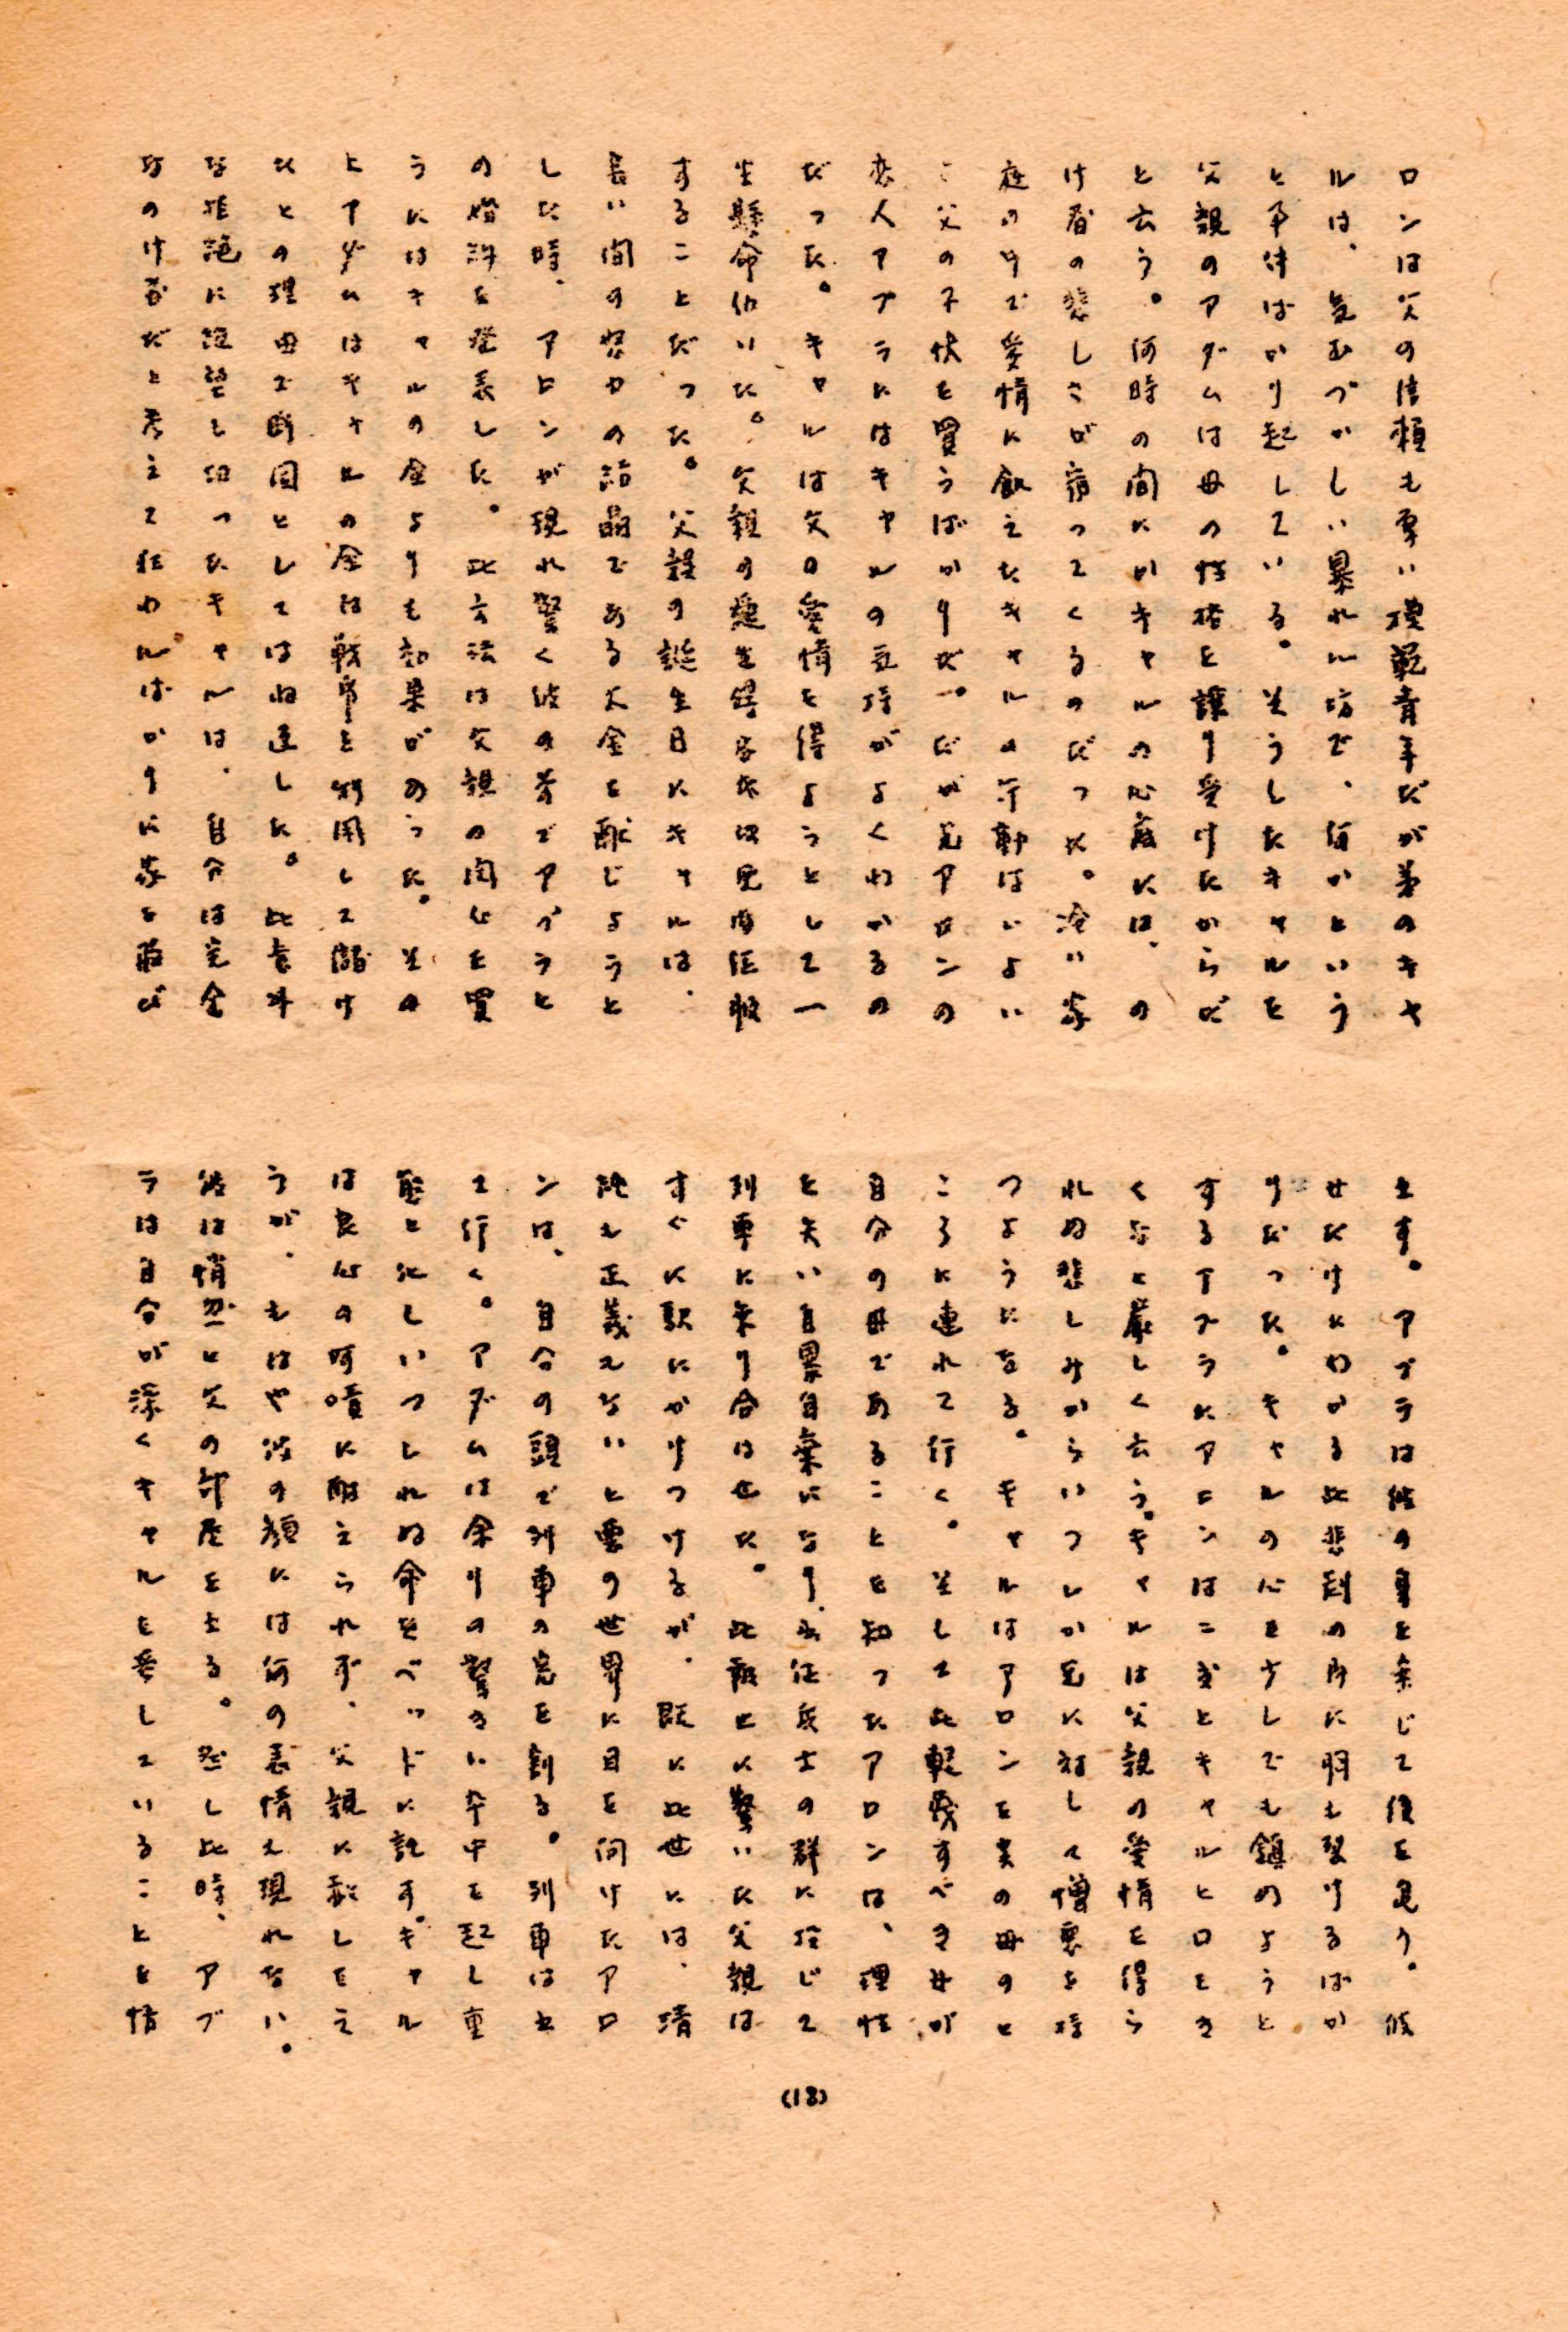 ロンは父の信頼も厚い模範青年だが弟のキャ
ルは、気むづかしい暴れん坊で、何かという
と事件ばかり起している。そうしたキャルを
父親のアダムは母の性格を譲り受けたからだ
と云う。何時の間にかキャルの心底には、の
け者の悲しさが宿ってくるのだった。冷い家
庭の中で愛情に飢えたキャルの行動はいよい
よ父の不快を買うばかりだ。だが兄アロンの
恋人アブラにはキャルの気持がよくわかるの
だった。キャルは父の愛情を得ようとして一
生懸命働いた。父親の
することだった。父親の誕生日にキャルは、
長い間の努力の結晶である大金を献じようと
した時、アロンが現れ驚く彼の前でアブラと
の婚約を発表した。此方法は父親の関心を買
うにはキャルの金よりも効果があった。その
上アダムはキャルの金は戦争を利用して儲け
たとの理由で断固としてはね返した。此意外
な拒絶に絶望し切ったキャルは、自分は完全
なのけ者だと考えて狂わんばかりに家を飛び
出す。アブラは彼の身を案じて後を追う。彼
せだけにわかる此悲劇の為に胸も裂けるばか
りだった。キャルの心を少しでも鎮めようと
するアブラにアロンは二度とキャルと口をき
くなと厳しく云う。キャルは父親の愛情を得ら
れぬ悲しみからいつしか兄に対して憎悪を持
つようになる。キャルはアロンを実の母のと
ころに連れて行く。そして此軽蔑すべき女が
自分の母であることを知ったアロンは、理性
を失い自暴自棄になり、出征兵士の群に投じて
列車に乗り合はせた。此報せに驚いた父親は
すぐに駅にかけつけるが、既に此世には、清
純も正義もないと悪の世界に目を向けたアロ
ンは、自分の頭で列車の窓を割る。列車は出
て行く。アダムは余りの驚きに卒中を起し重
態と化しいつしれぬ命をベッドに託す。キャル
は良心の呵責に耐えられず、父親に赦しをこ
うが、もはや彼の顔には何の表情も現れない。
彼は悄然と父の部屋を出る。然し此時、アブ
ラは自分が深くキャルを愛していることを悟
(18)